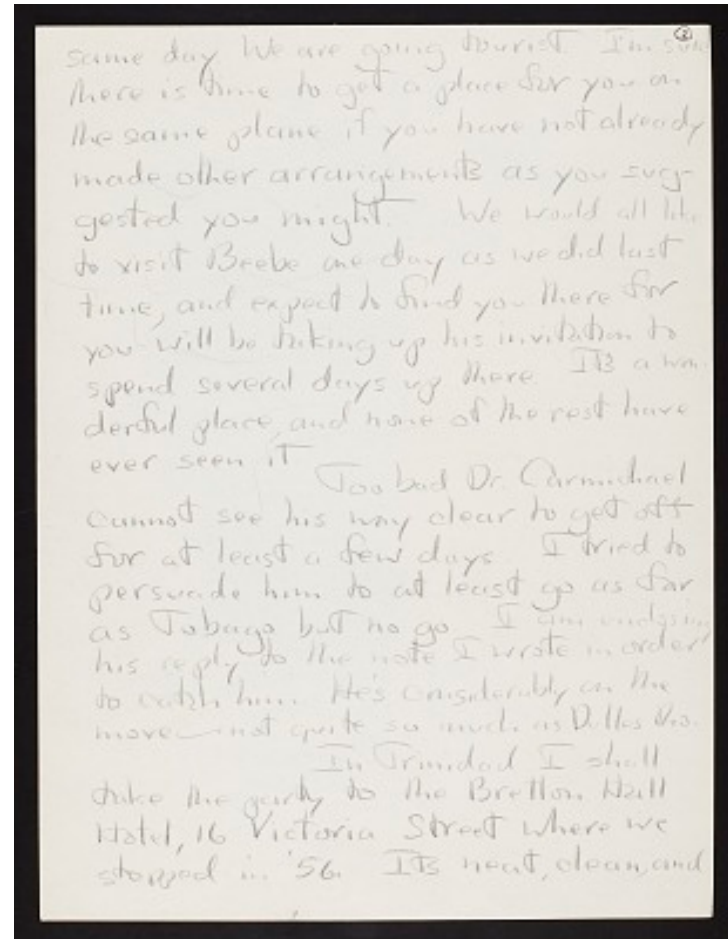 ②
same day We are going tourist I'm sure
there is time to get a place for you on
the same plane if you have not already
made other arrangements as you sug-
gested you might. We would all like
to visit Beebe one day as we did last
time, and expect to find you there for
you will be taking up his invitation to
spend several days up there Its a won-
derful place, and none of the rest have
ever seen it
Too bad Dr. Carmichael
cannot see his way clear to get off
for at least a few days I tried to
persuade him to at least go as far
as Tobago but no go I am
his reply to the note I wrote in order
to catch him. He's considerably on the
move—not quite so much as Dulles
In Trinidad I shall
take the party to the Bretton Hall
Hotel, 16 Victoria Street where we
stopped in '56. Its neat, clean, and